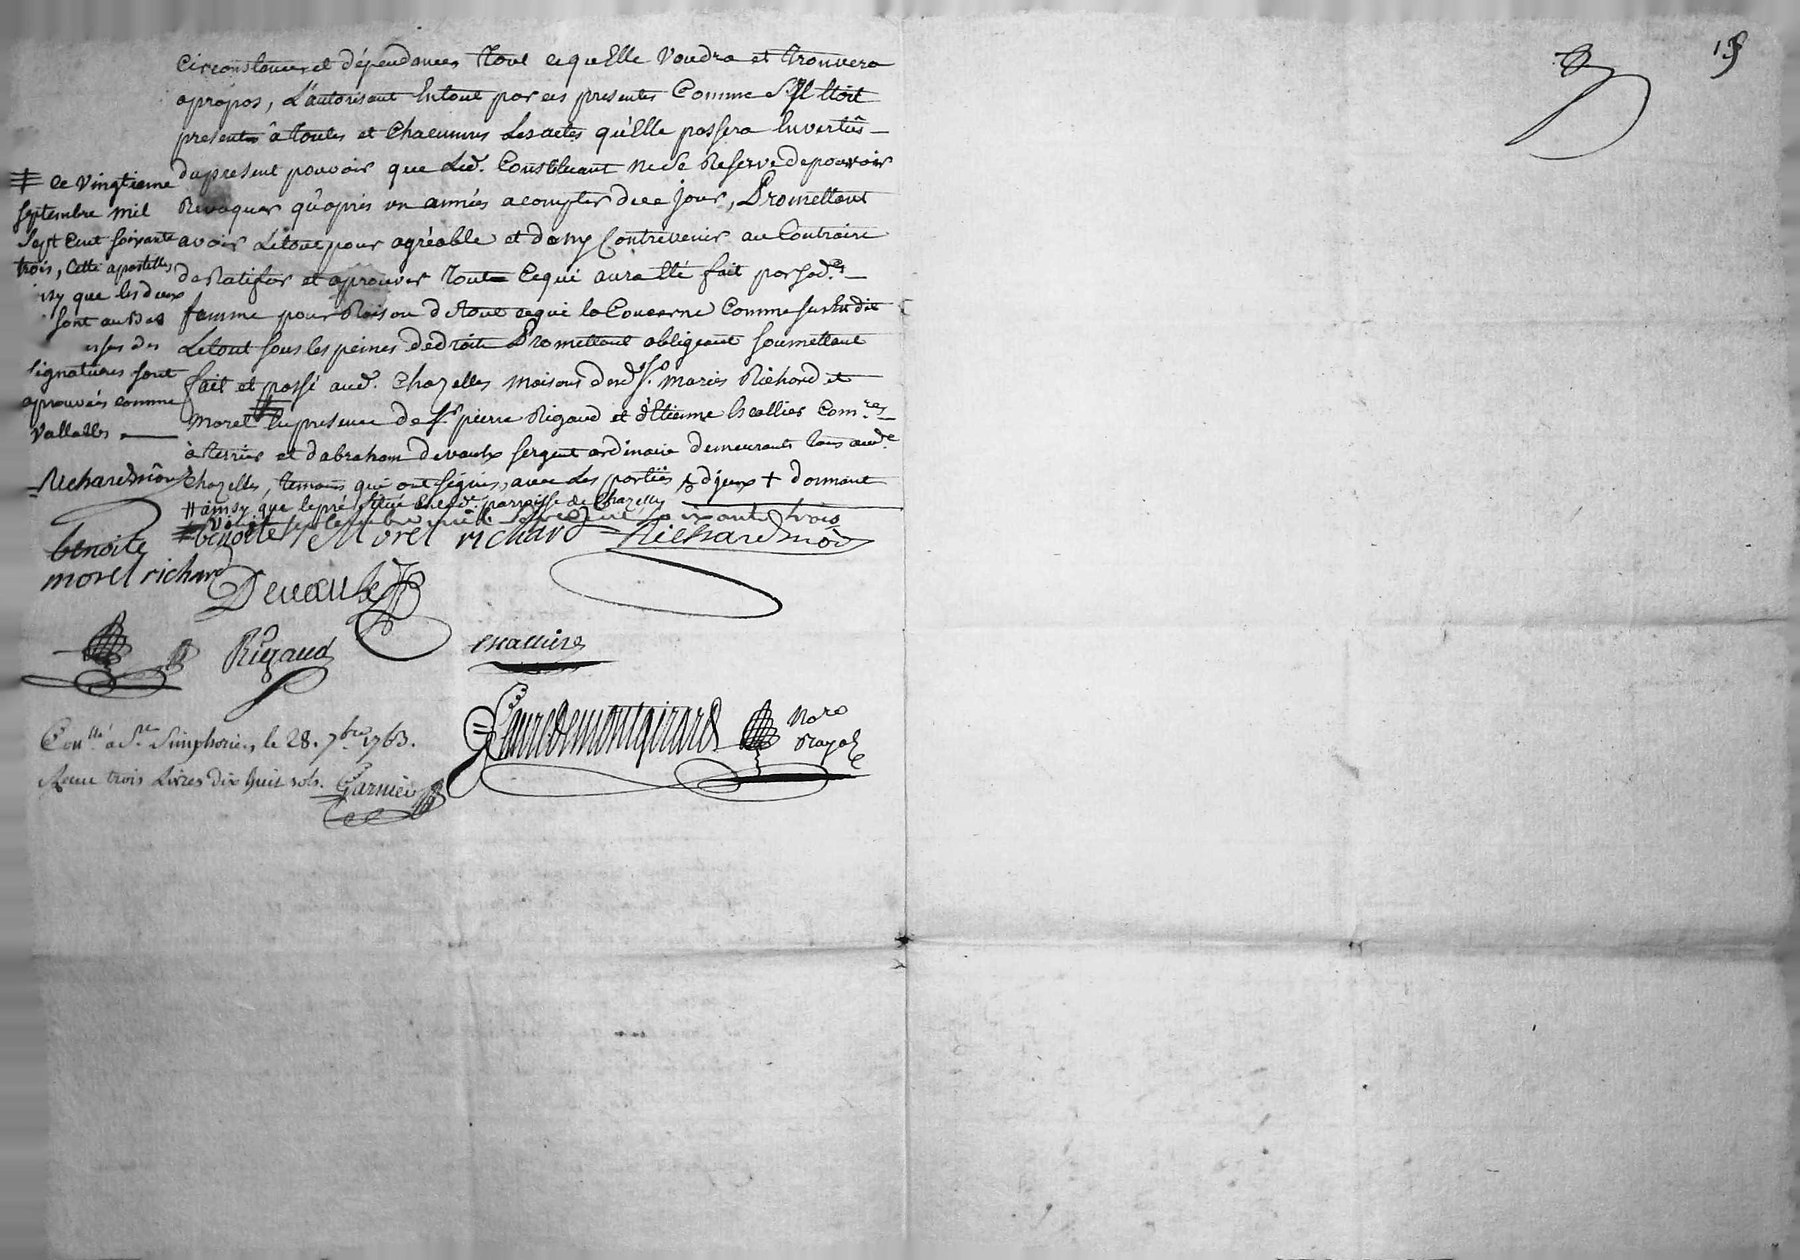 Circonstances et dépendances Tout ce quelle Voudra et trouvera
apropos, L'autorisant En tout par ces presentes Comme S'Il Etoit
present à Toutes et Chacunnes Les actes qu'Elle passera En vertû
du present pouvoir que Led. Constituant ne se Reserve de pouvoir
Revoquer qu'après un année a compter de ce jour, Promettant
avoir Le tout pour agréable et de ny Contrevenir au Contraire
de Ratifier et aprouver Tout Ce qui aura Eté fait par sad.
femme pour Raison de tout ce qui la Concerne Comme sus Est dit
Le tout sous les peines de droits Promettant obligeant soumettant
fait et passé aud. Chazelles maison desd. mariés Richard et
Morel En presence de Sr. pierre Rigaud et d'Etienne Escallier Com.res
à terrier et d'abraham Devaulx sergent ordinaire demeurants tous aud.
Chazelles, temoins qui ont signés, avec Les parties dormant
ainsy que le paroisse de Chazelles
Vingt septembre mil sept cent soixante trois
‡ ce vingtieme
septembre mil
sept Cent soixante
trois, Cette apostille
que les deux
sont au bas
des
signatures sont
aprouvées comme
Vallables
Richardmôd
benoite
morel richard
benoite Morel richard Richardmôd
Devaulx
Rigaud
escallier
Caire de montgirard Nore
Royal
Con.llé a St. Simphorien, le 28. 7bre 1763.
Reçu trois Livres dix huit sols. Garnier
19